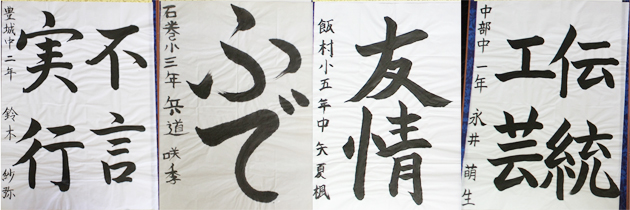 不言
実行
豊城中二年 鈴木 紗弥
ふで
石巻小三年 兵道 咲季
友情
飯村小五年 中矢夏楓
伝統
工芸
中部中一年 永井 萌生